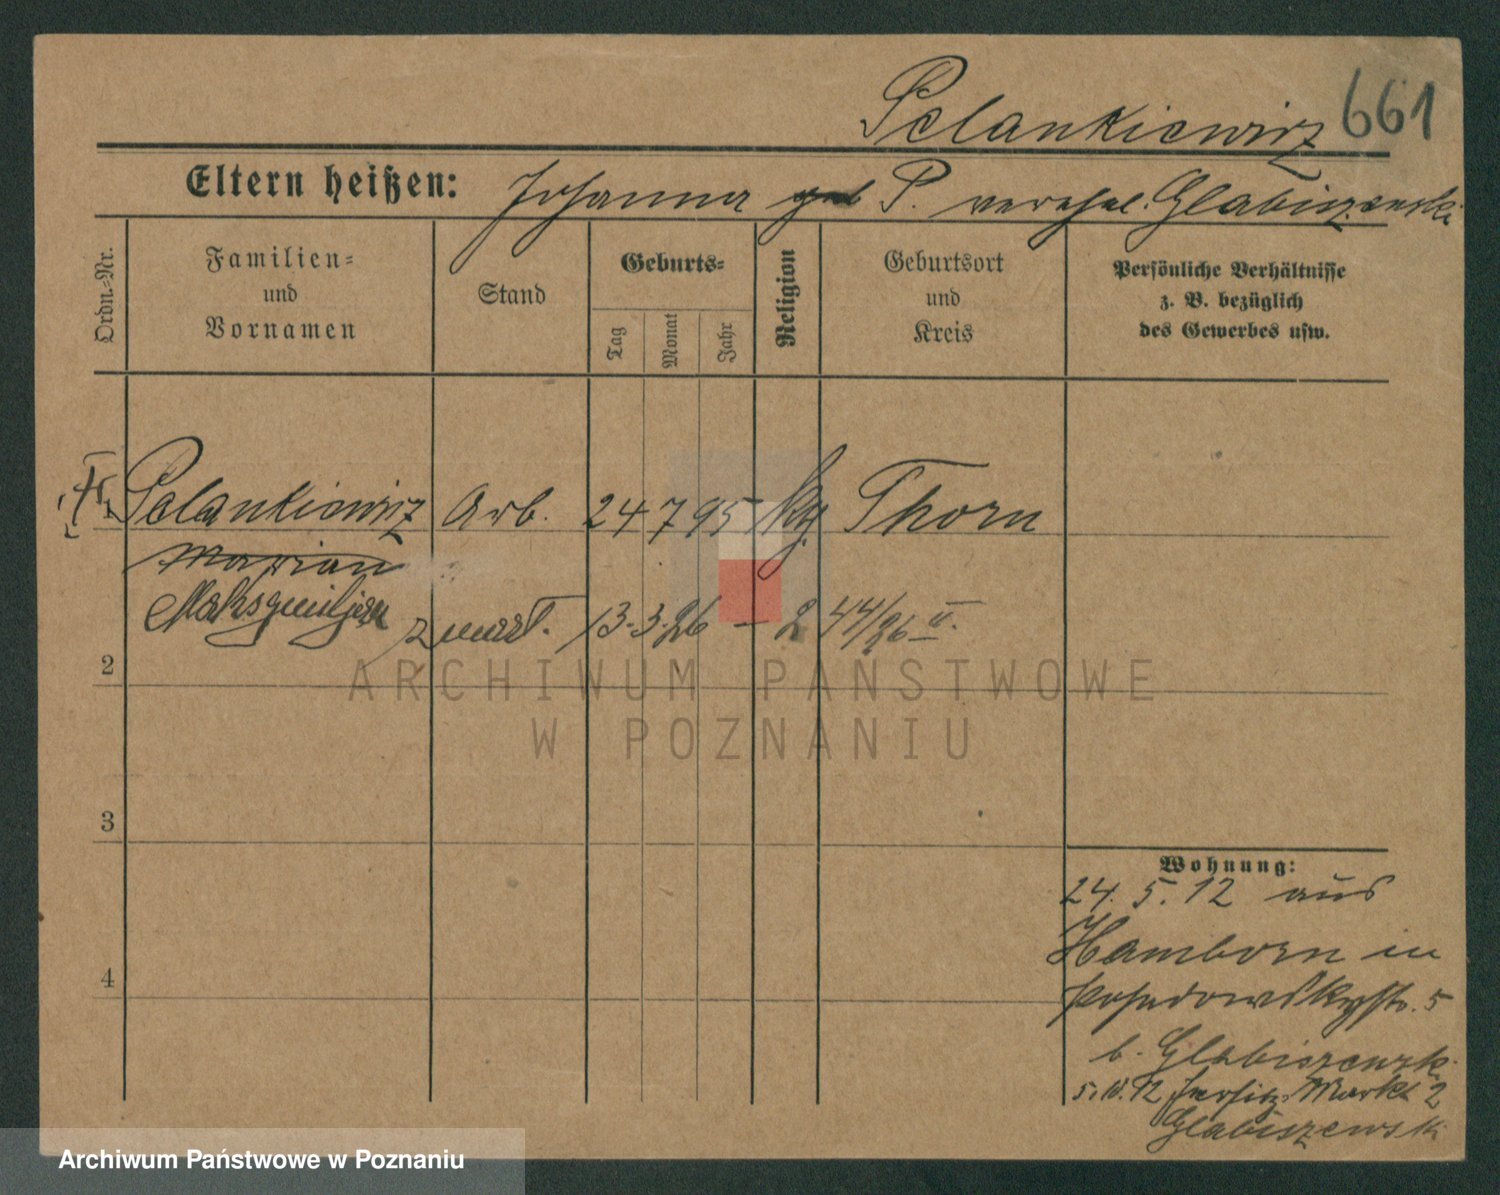 Pelankiewicz 661
Eltern heißen: Johanna geb P. verehel. Glabiszewski
Ordn.=Nr.
Familien=
und
Vornamen
Stand
Geburts=
Tag
Monat
Jahr
Religion
Geburtsort
und
Kreis
Persönliche Verhältnisse
z. B. bezüglich
des Gewerbes usw.
1 Pelankiewicz Arb. 24 7 95 kg Thorn
Marian
Maksymiljan zmarł. 13.3.26 — 2 44/26 II.
2
3
4
Wohnung:
24. 5. 12 aus
Hamborn in
Posadowskystr. 5
b. Glabiszewsk.
5.10.12 Jersitz. Markt 2
Glabiszewski
ARCHIWUM PAŃSTWOWE
W POZNANIU
Archiwum Państwowe w Poznaniu